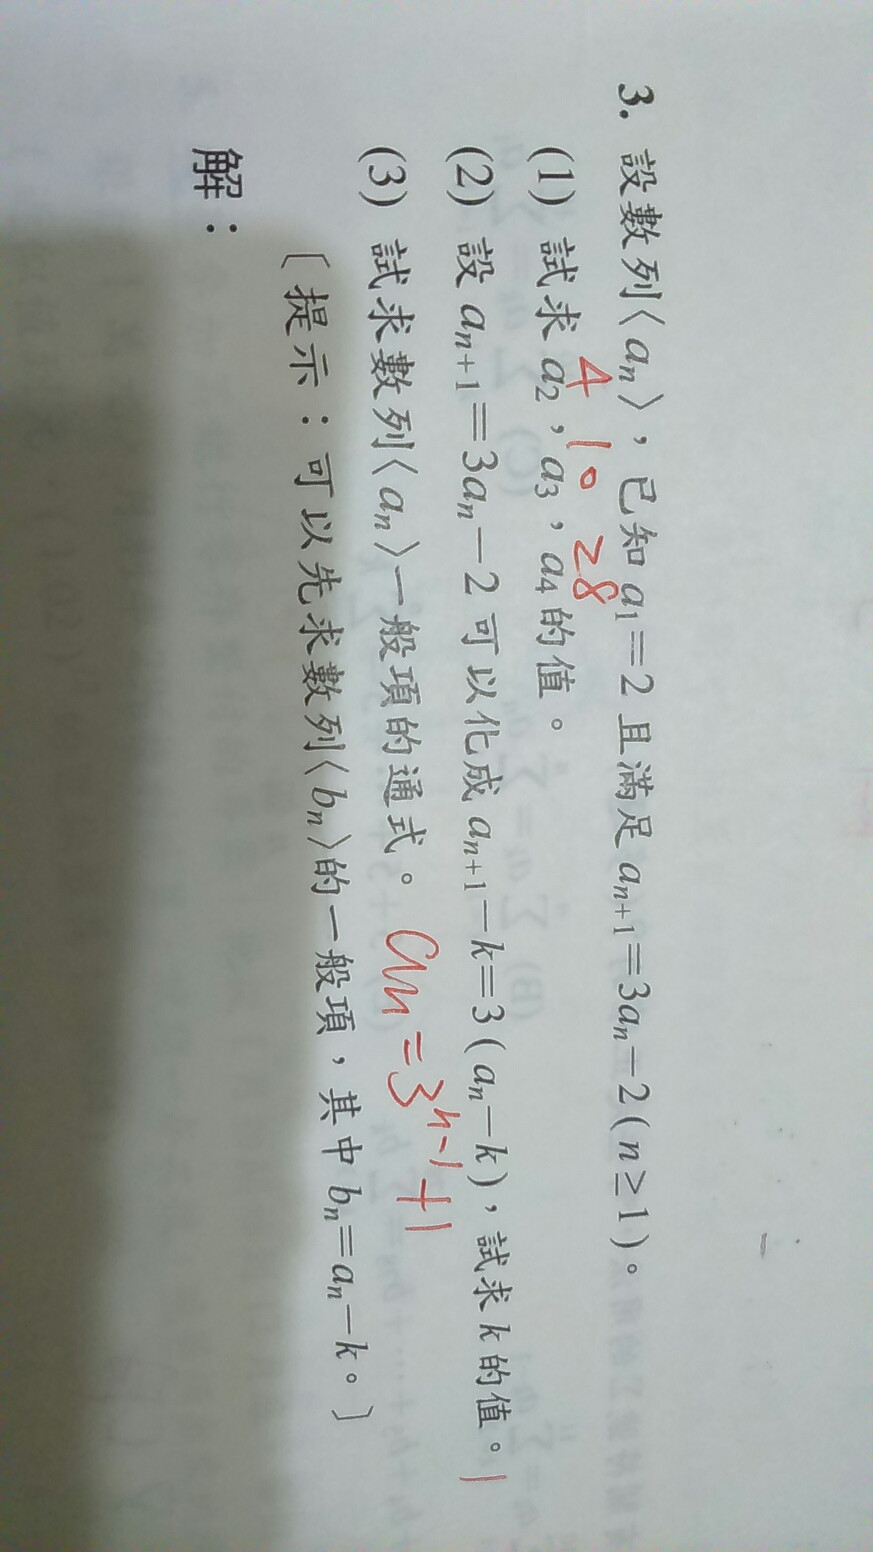 3. 設數列〈an〉，已知 a1=2 且滿足 an+1=3an−2(n≥1)。
4 10 28
(1) 試求 a2，a3，a4 的值。
(2) 設 an+1=3an−2 可以化成 an+1−k=3(an−k)，試求 k 的值。1
(3) 試求數列〈an〉一般項的通式。 an=3^n-1+1
〔提示：可以先求數列〈bn〉的一般項，其中 bn=an−k。〕
解：